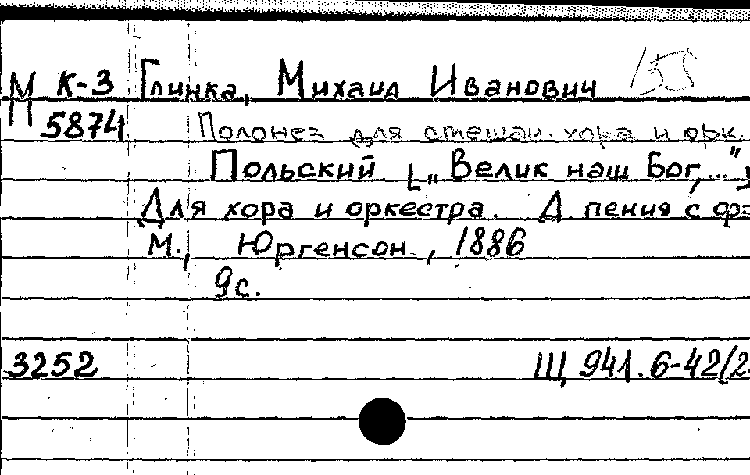 М К-3 Глинка, Михаил Иванович 155
5874 Полонез для смешан. хора и орк.
Польский [„Велик наш Бог,..."]
Для хора и оркестра. Д. пения с фэ
М., Юргенсон, 1886
9с.
3252 Щ 941.6-42/2